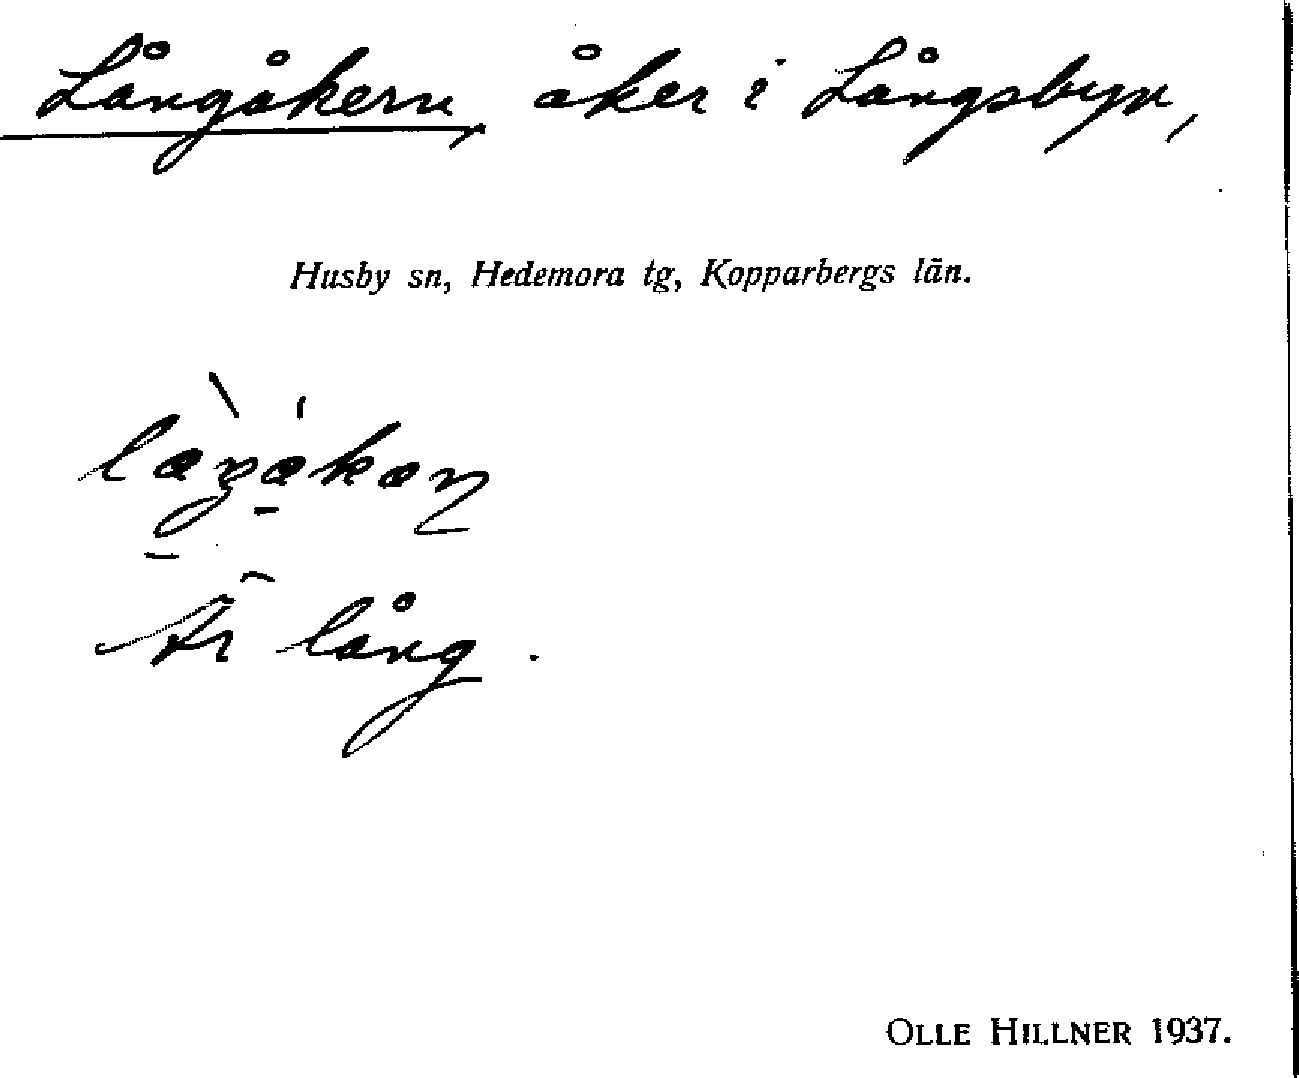 Långåkern, åker i Långsbyn,
Husby sn, Hedemora tg, Kopparbergs län.
Är lång.
OLLE HILLNER 1937.